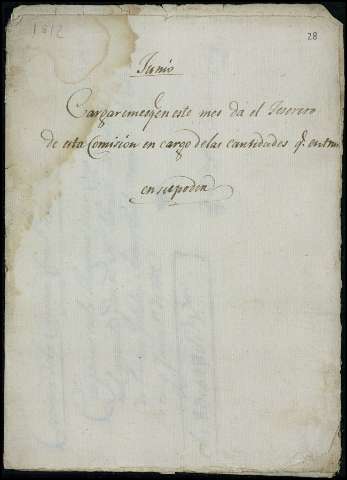 1812
28
Junio
Cargaremes qe. en este mes da el Tesorero
de esta Comisión en cargo de las cantidades q. entran
en su poder